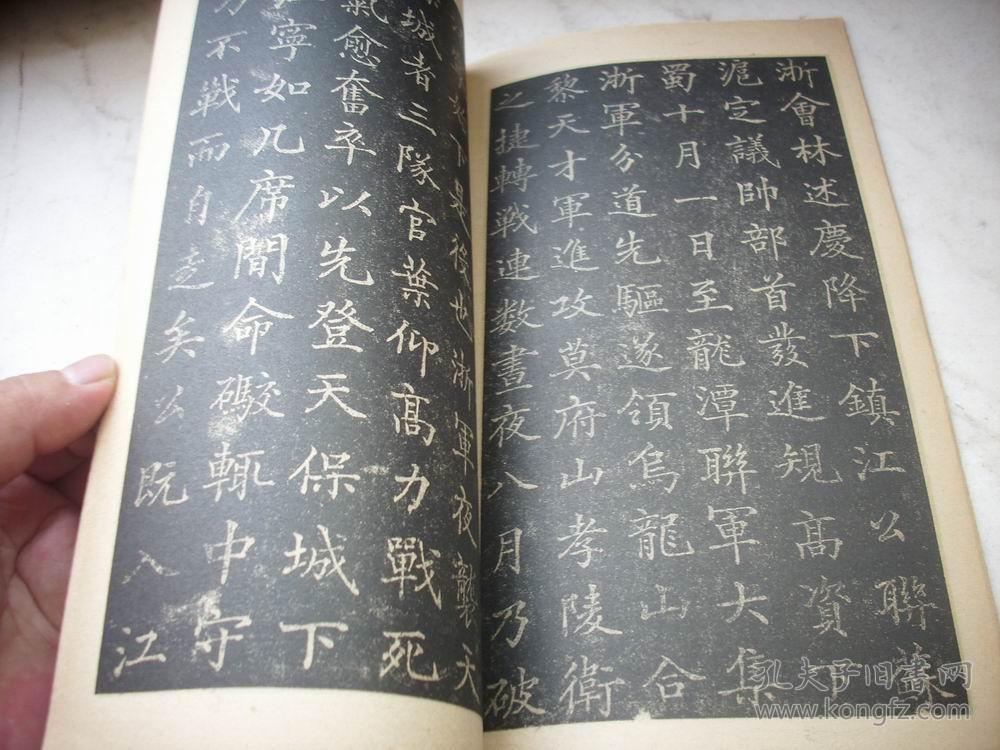 浙會林述慶降下鎮江公聯蘇
滬定議帥部首發進規高資
蜀十月一日至龍潭聯軍大集
浙軍分道先驅遂領烏龍山合
黎天才軍進攻莫府山孝陵衛
之捷轉戦連数晝夜八月乃破
下是役也浙軍夜襲天
城者三隊官葉仰高力戰死
氣愈奮卒以先登天保城下
寧如几席間命礮輒中守
不戰而自走矣公既入江
孔夫子旧書网
www.kongfz.com